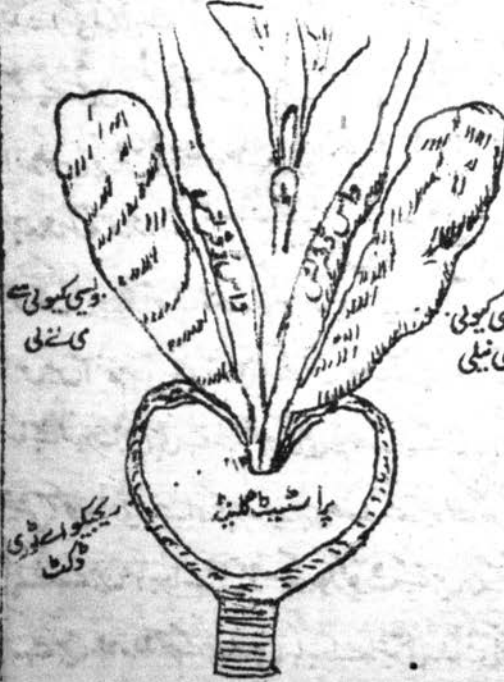 واس ڈفرنس
واس ڈفرنس
ویسی کیولی سے
می نے لی
کیولی
نیلی
پراسٹیٹ گلینڈ
ریجیکو اے ٹری
ڈکٹ